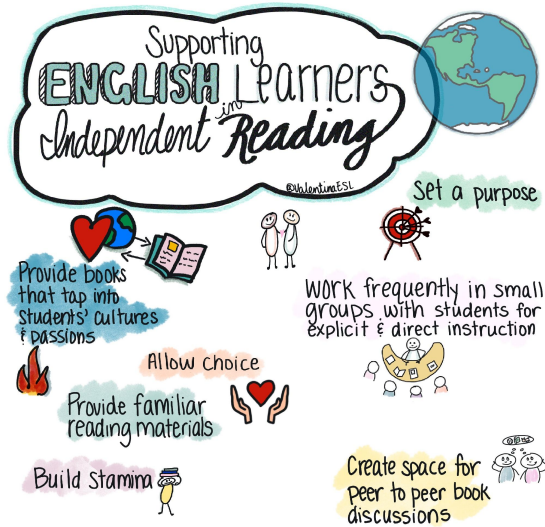 Supporting
ENGLISH Learners
in
Independent Reading
@ValentinaESL
Set a purpose
Provide books
that tap into
students' cultures
& passions
Work frequently in small
groups with students for
explicit & direct instruction
Allow Choice
Provide familiar
reading materials
Build Stamina
Create space for
peer to peer book
discussions